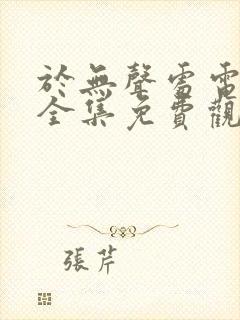 於無聲雷電
全集免費觀
張芹